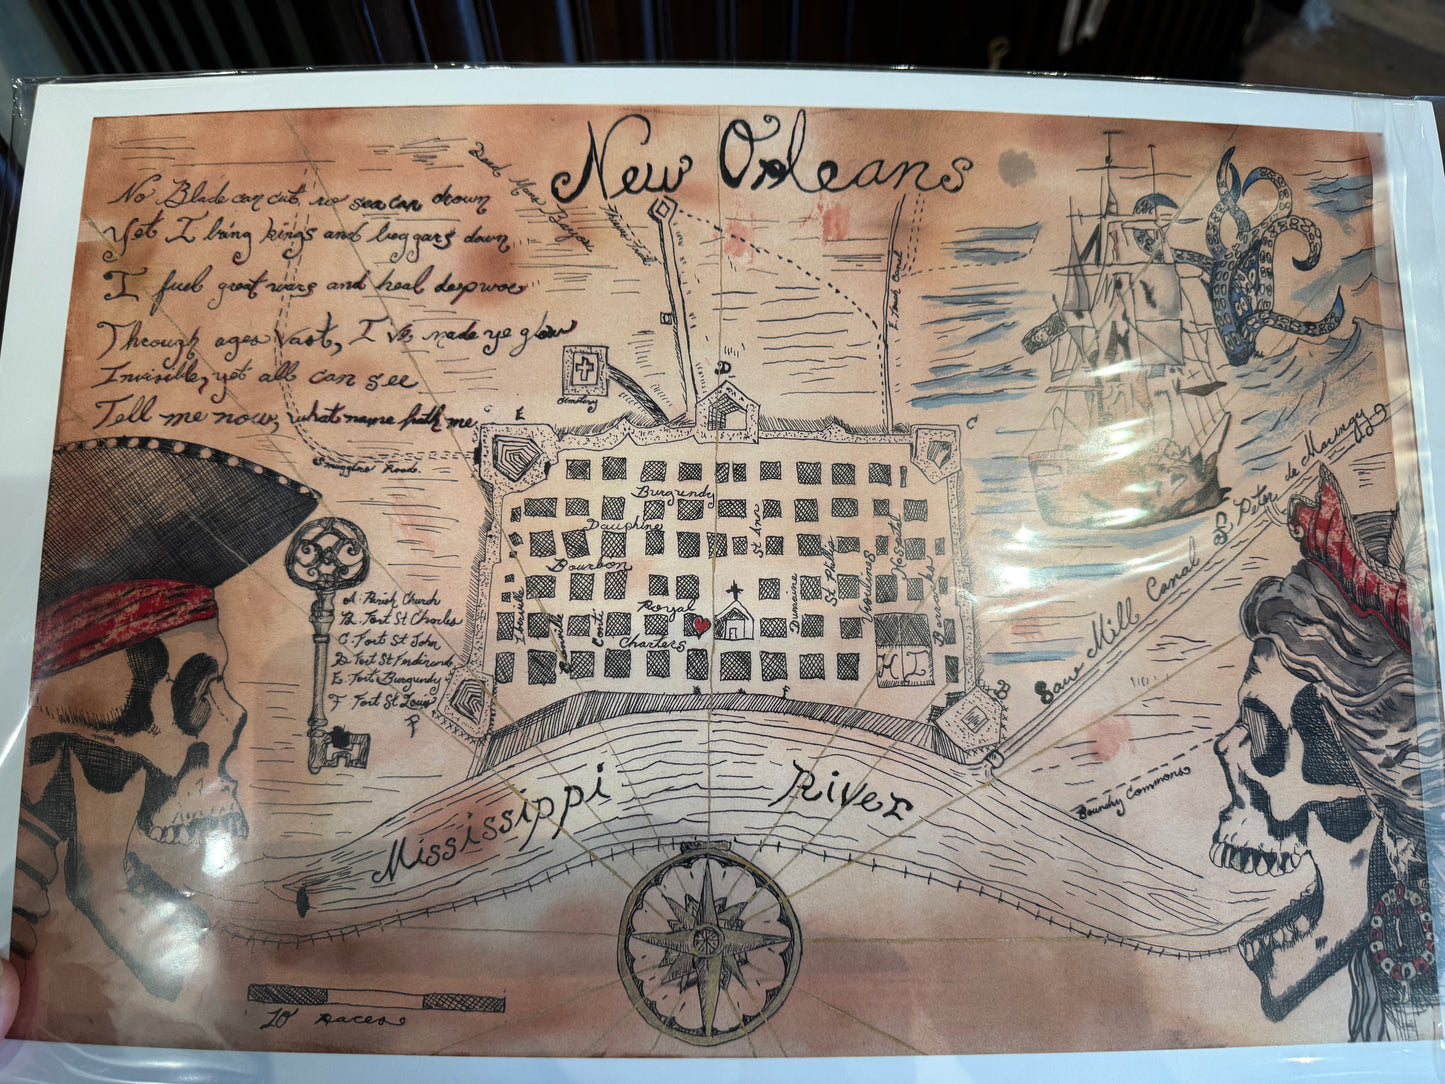 New Orleans
No Blade can cut, no sea can drown
Yet I bring kings and beggars down
I fuel great wars and heal deep woe
Through ages vast, I've made ye glow
Invisible, yet all can see
Tell me now, what name hath me
Dead Mans Barge
Cemetery
Smugglers Roade
D
E
C
B
F
A: Parish Church
B. Fort St Charles
C. Fort St John
D Fort St Ferdinand
E. Fort Burgundy
F Fort St Louis
Burgundy
Dauphine
Bourbon
Royal
Charters
Iberville
Bienville
Conti
St Ann
Dumaine
St Philip
Ursulines
Barracks
H I
Saw Mill Canal
St Peter de Maringy
Boundry Commons
Mississippi River
10 paces